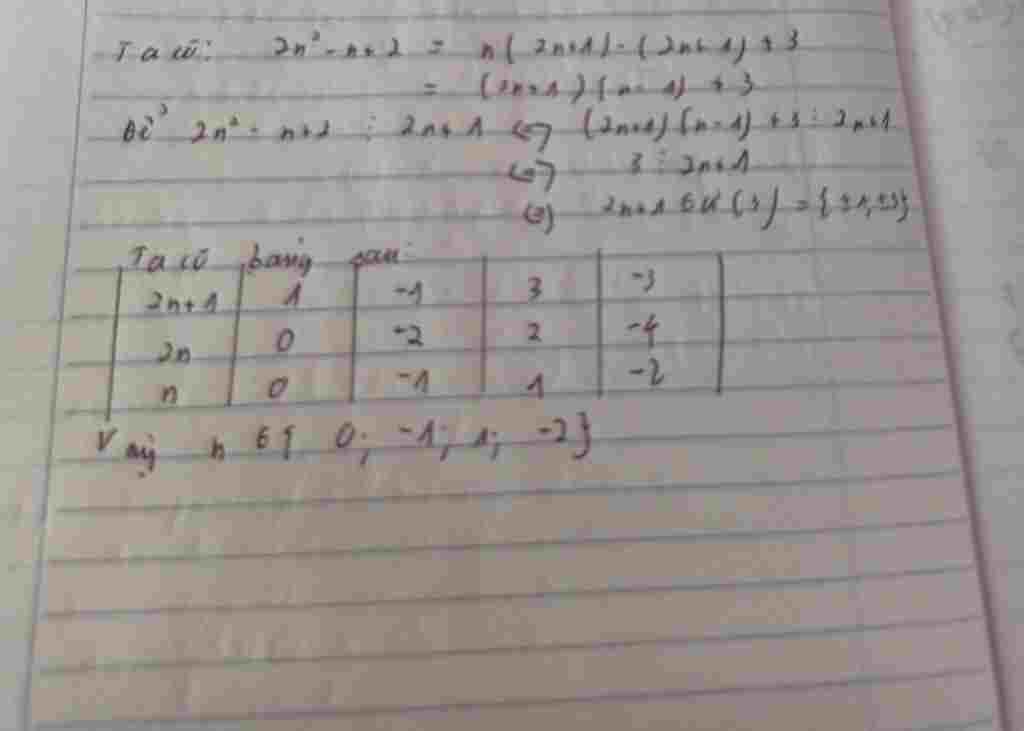 Ta có: 2n² - n + 2 = n(2n+1) - (2n+1) + 3
= (2n+1)(n-1) + 3
Để 2n² - n + 2 ⋮ 2n+1 <=> (2n+1)(n-1) + 3 ⋮ 2n+1
<=> 3 ⋮ 2n+1
<=> 2n+1 ∈ Ư(3) = {±1, ±3}
Ta có bảng sau:
2n+1 1 -1 3 -3
2n 0 -2 2 -4
n 0 -1 1 -2
Vậy n ∈ { 0; -1; 1; -2}